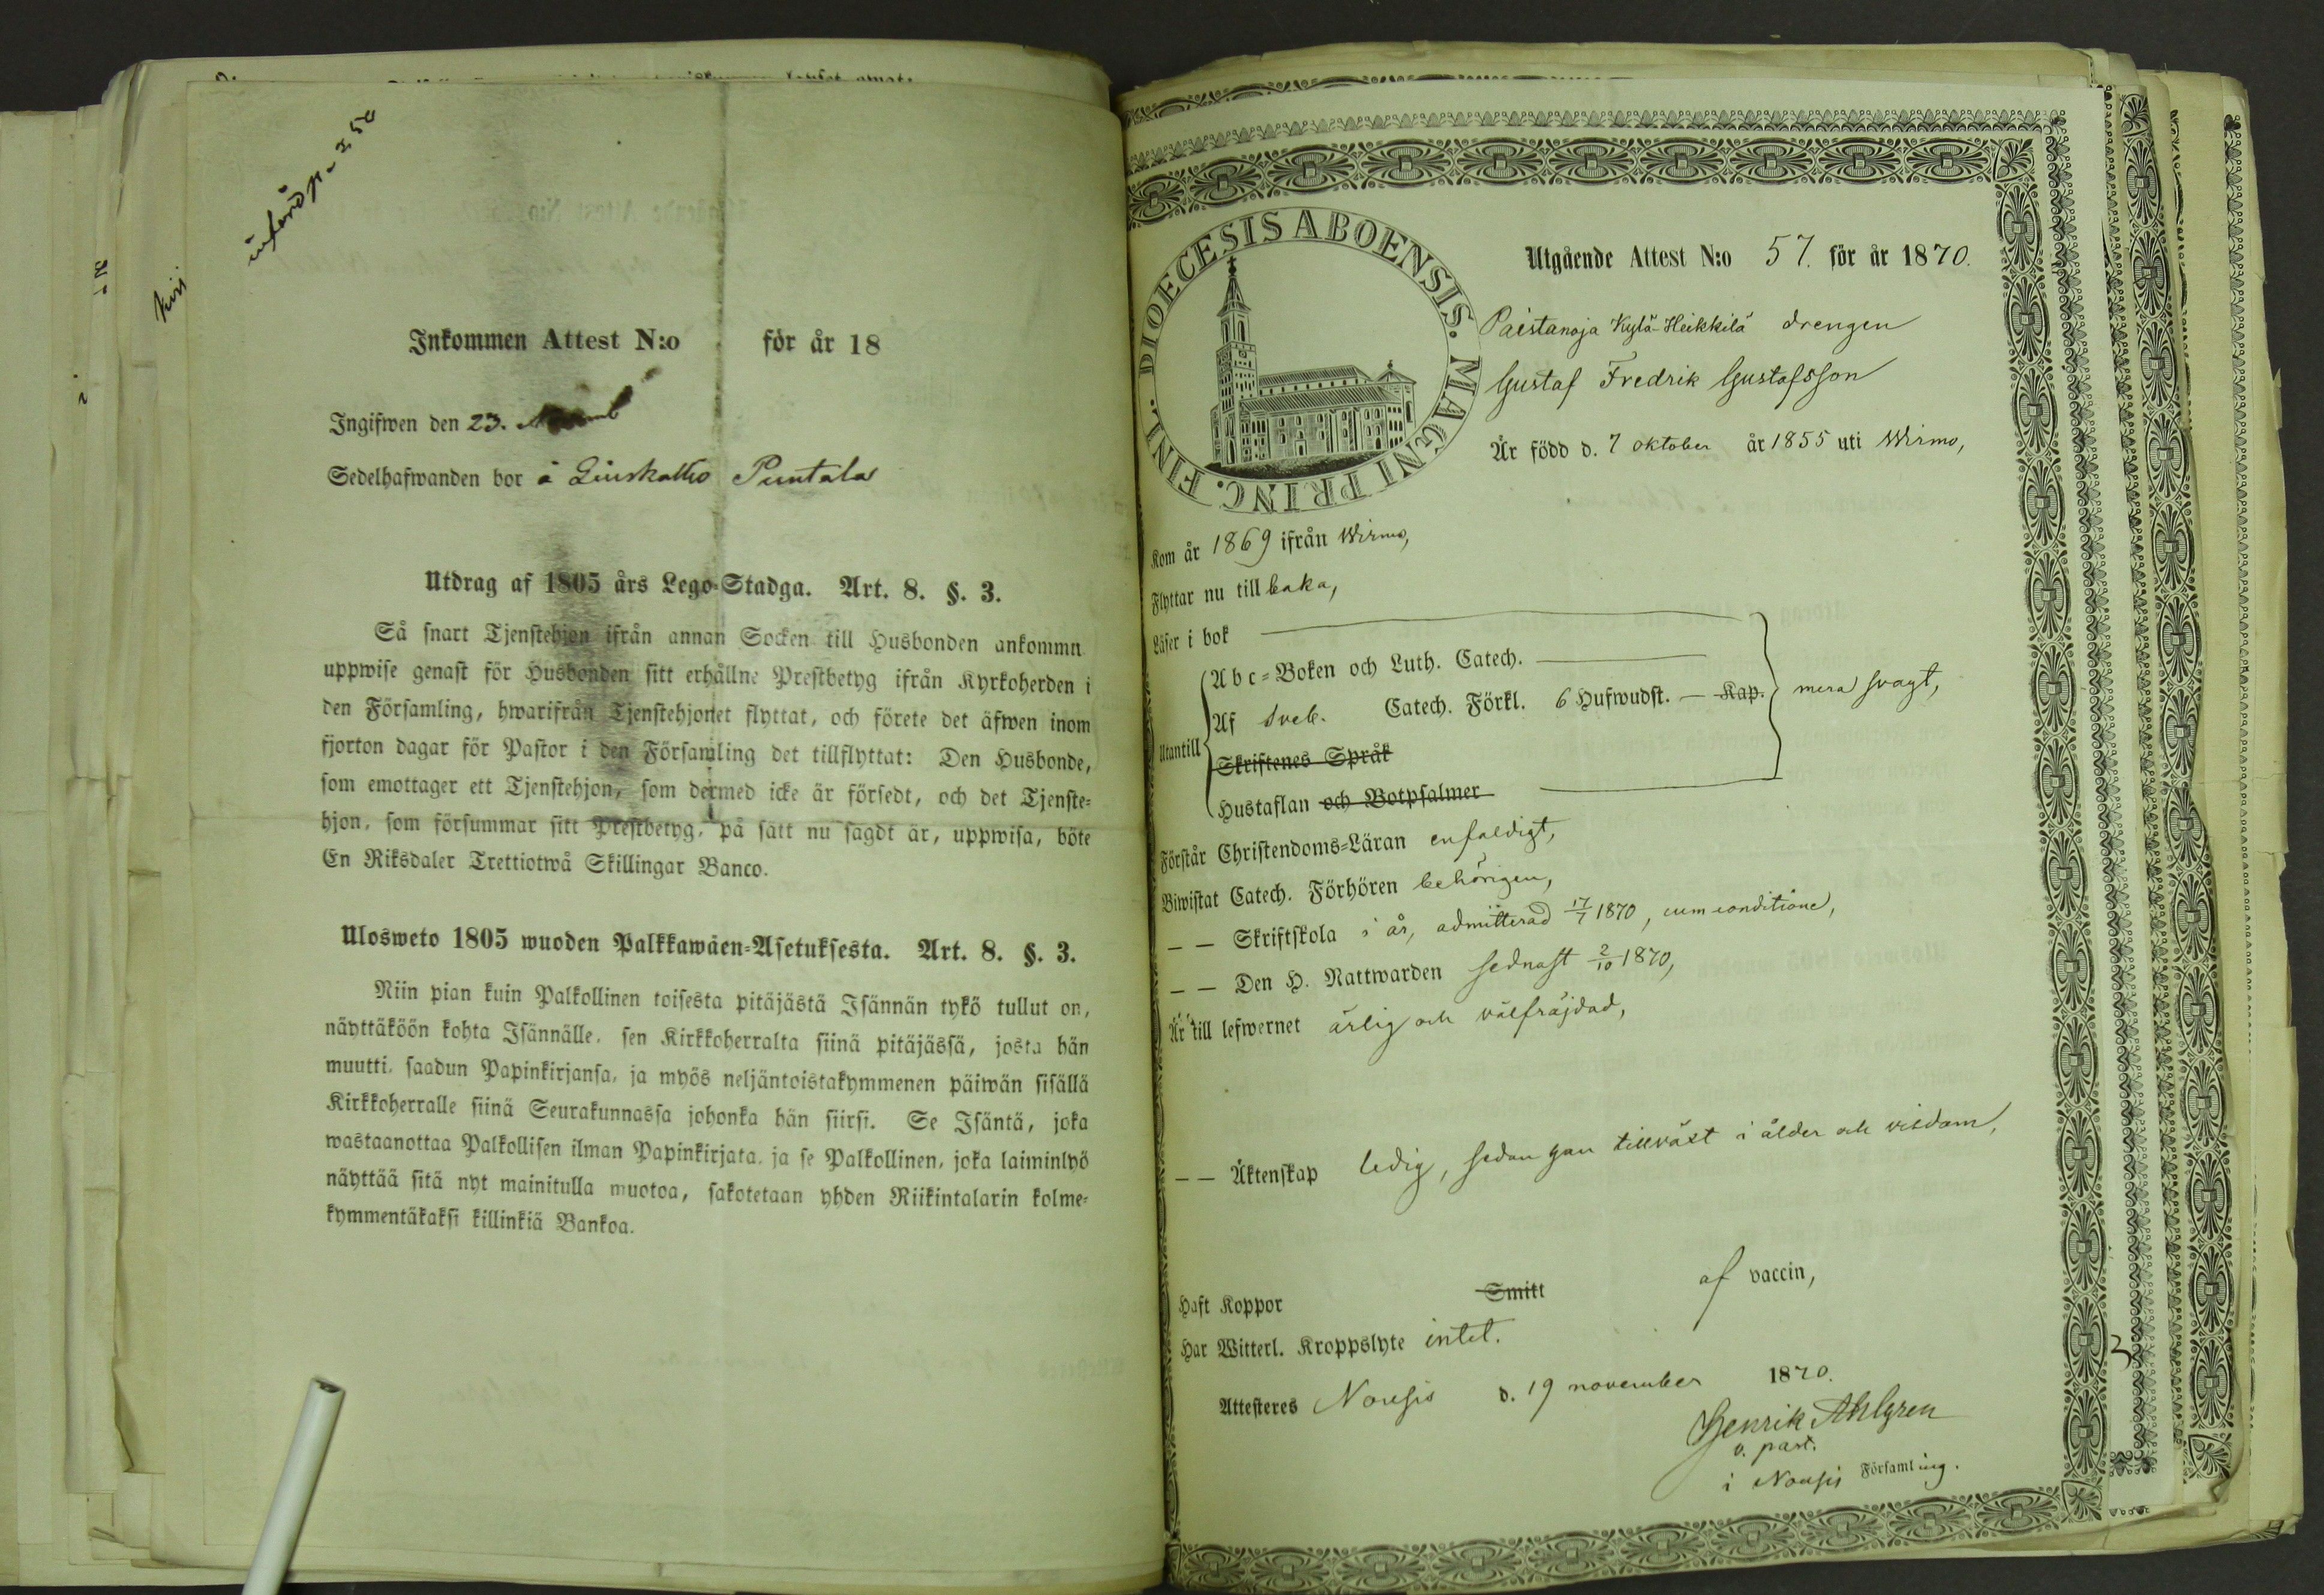 Inkommen Attest N:o för år 18
Ingifwen den 23.
Sedelhafwanden bor å Linskallio Puntala
Utdrag af 1805 års Lego-Stadga. Art. 8. §. 3.
Så snart Tjenstehjon ifrån annan Socken till Husbonden ankommn
uppwise genast för Husbonden sitt erhållne Prestbetyg ifrån Kyrkoherden i
den Församling, hwarifrån Tjenstehjonet flyttat, och förete det äfwen inom
fjorton dagar för Pastor i den Församling det tillflyttat: Den Husbonde,
som emottager ett Tjenstehjon, som dermed icke är försedt, och det Tjenste-
hjon, som försummar sitt Prestbetyg, på sätt nu sagdt är, uppwisa, böte
En Riksdaler Trettiotwå Skillingar Banco.
Ulosweto 1805 wuoden Palkkawäen-Asetuksesta. Art. 8. §. 3.
Niin pian kuin Palkollinen toisesta pitäjästä Isännän tykö tullut on,
näyttäköön kohta Isännälle, sen Kirkkoherralta siinä pitäjässä, josta hän
muutti, saadun Papinkirjansa, ja myös neljäntoistakymmenen päiwän sisällä
Kirkkoherralle siinä Seurakunnassa johonka hän siirsi. Se Isäntä, joka
wastaanottaa Palkollisen ilman Papinkirjata, ja se Palkollinen, joka laiminlyö
näyttää sitä nyt mainitulla muotoa, sakotetaan yhden Riikintalarin kolme-
kymmentäkaksi killinkiä Bankoa.
DIOECESIS ABOENSIS. MAGNI PRINC. FINL.
Utgående Attest N:o 57. för år 1870.
Paistanoja Kylä-Heikkilä drengen
Gustaf Fredrik Gustafsson
Är född d. 7 oktober år 1855 uti Wirmo,
Kom år 1869 ifrån Wirmo,
Flyttar nu till baka,
Läser i bok
Abc-Boken och Luth. Catech.
Utantill Af Sveb. Catech. Förkl. 6 Hufwudst. — Kap. mera svagt,
Skriftenes Språk
Hustaflan och Botpsalmer
Förstår Christendoms-Läran enfaldigt,
Biwistat Catech. Förhören behörigen,
— — Skriftskola i år, admitterad 17/7 1870, cum conditione,
— — Den H. Nattwarden sednast 2/10 1870,
Är till lefwernet ärlig och välfräjdad,
— — Äktenskap ledig, sedan han tillväxt i ålder och visdom,
Haft Koppor Smitt af vaccin,
Har Witterl. Kroppslyte intet.
Attesteras Nousis d. 19 november 1870.
Henrik Ahlgren
v. past.
i Nousis Församling.
3